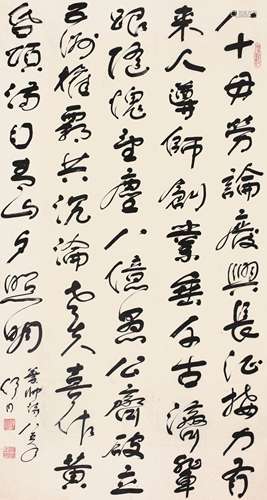 八十毋勞論廢興長征接力有
来人導師創業垂千古濟輩
跟隨愧望塵八億愚公齊破立
五洲權霸共沉淪老夫喜作黄
昏頌滿目青山夕照明
葉帥詩
舒同